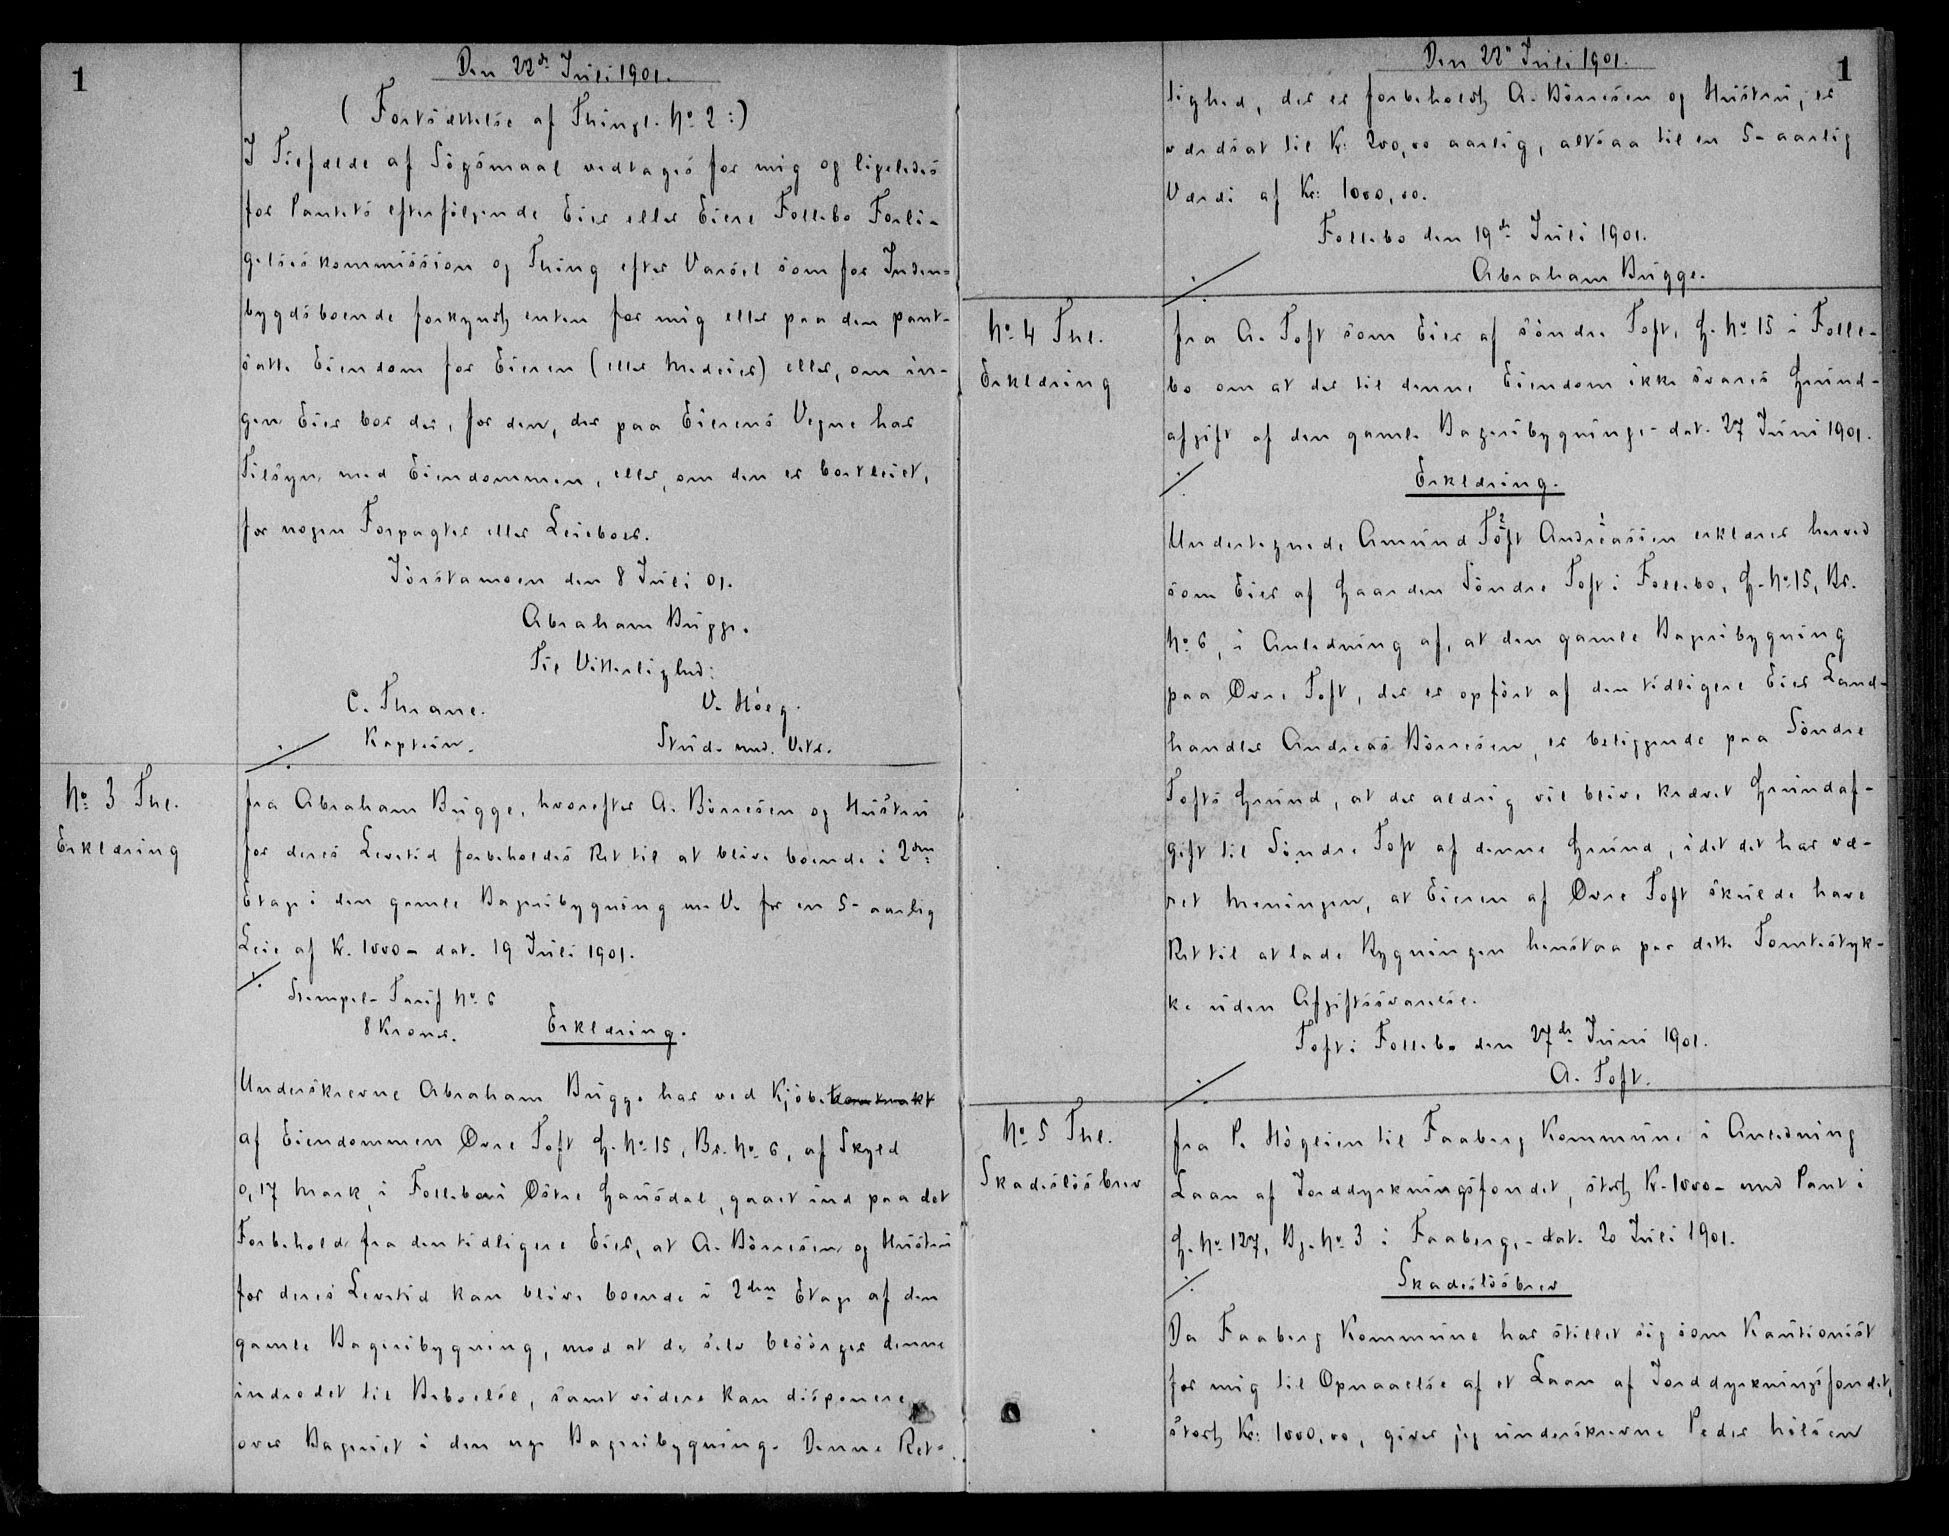 1
Den 22de Juli 1901.
(Fortsættelse af Thingl. No 2:)
I Tilfælde af Sögsmaal vedtages for mig og ligeledes
for Pantets efterfölgende Eier eller Eiere Follebo Forli-
gelseskommission og Thing efter Varsel som for Inden-
bygdsboende forkyndt enten for mig eller paa den pant-
satte Eiendom for Eieren (eller Medeier) eller, om in-
gen Eier bor der, for den, der paa Eierens Vegne har
Tilsyn med Eiendommen, eller, om den er bortleiet,
for nogen Forpagter eller Leieboer.
Jörstamoen den 8 Juli 01.
Abraham Bugge.
Til Vitterlighed:
C. Thrane. V. Höeg.
Kaptein. Stud. med. Vetr.
No 3 Thl.
Erklæring
fra Abraham Bugge, hvorefter A. Börresen og Hustru
for deres Levetid forbeholdes Ret til at blive boende i 2den
Etage i den gamle Bageribygning m. V. for en 5-aarlig
Leie af Kr. 1000 - dat. 19 Juli 1901.
Stempel-Tarif No 6
8 Kroner.
Erklæring.
Underskrevne Abraham Bugge har ved Kjöbet kontrakt
af Eiendommen Övre Toft G. No 15, Br. No 6, af Skyld
0,17 Mark i Follebo i Östre Gausdal, gaaet ind paa det
Forbehold fra den tidligere Eier, at A. Börresen og Hustru
for deres Levetid kan blive boende i 2den Etage af den
gamle Bageribygning, mod at de selv besörger denne
indredet til Beboelse, samt videre kan disponere
over Bageriet i den nye Bageribygning. Denne Ret-
1
Den 22de Juli 1901.
tighed, der er forbeholdt A. Börresen og Hustru, er
værdsat til Kr: 200,00 aarlig, altsaa til en 5-aarlig
Værdi af Kr: 1000,00.
Follebo den 19de Juli 1901.
Abraham Bugge.
No 4 Thl.
Erklæring
fra A. Toft som Eier af söndre Toft, G. No 15 i Folle-
bo om at der til denne Eiendom ikke svares Grund-
afgift af den gamle Bageribygninge - dat. 27 Juni 1901.
Erklæring.
2 1
Undertegnede Amund Toft Andreassen erklærer herved
som Eier af Gaarden Söndre Toft i Follebo, G. No 15, Br.
No 6, i Anledning af, at den gamle Bageribygning
paa Övre Toft, der er opfört af den tidligere Eier Land-
handler Andreas Börresen, er beliggende paa Söndre
Tofts Grund, at der aldrig vil blive krævet Grundaf-
gift til Söndre Toft af denne Grund, idet det har væ-
ret Meningen, at Eieren af Övre Toft skulde have
Ret til at lade Bygningen henstaa paa dette Tomtestyk-
ke uden Afgiftssvarelse.
Toft i Follebo den 27de Juni 1901.
A. Toft.
No 5 Thl.
Skadeslösbrev
fra P. Högleien til Faaberg Kommune i Anledning
Laan af Jorddyrkningsfondet, stort Kr. 1000 - med Pant i
G. No 127, Bg. No 3 i Faaberg, - dat. 20 Juli 1901.
Skadeslösbrev
Da Faaberg Kommune har stillet sig som Kautionist
for mig til Opnaaelse af et Laan af Jorddyrkningsfondet,
stort Kr: 1000,00, giver jeg underskrevne Peder Nilsen